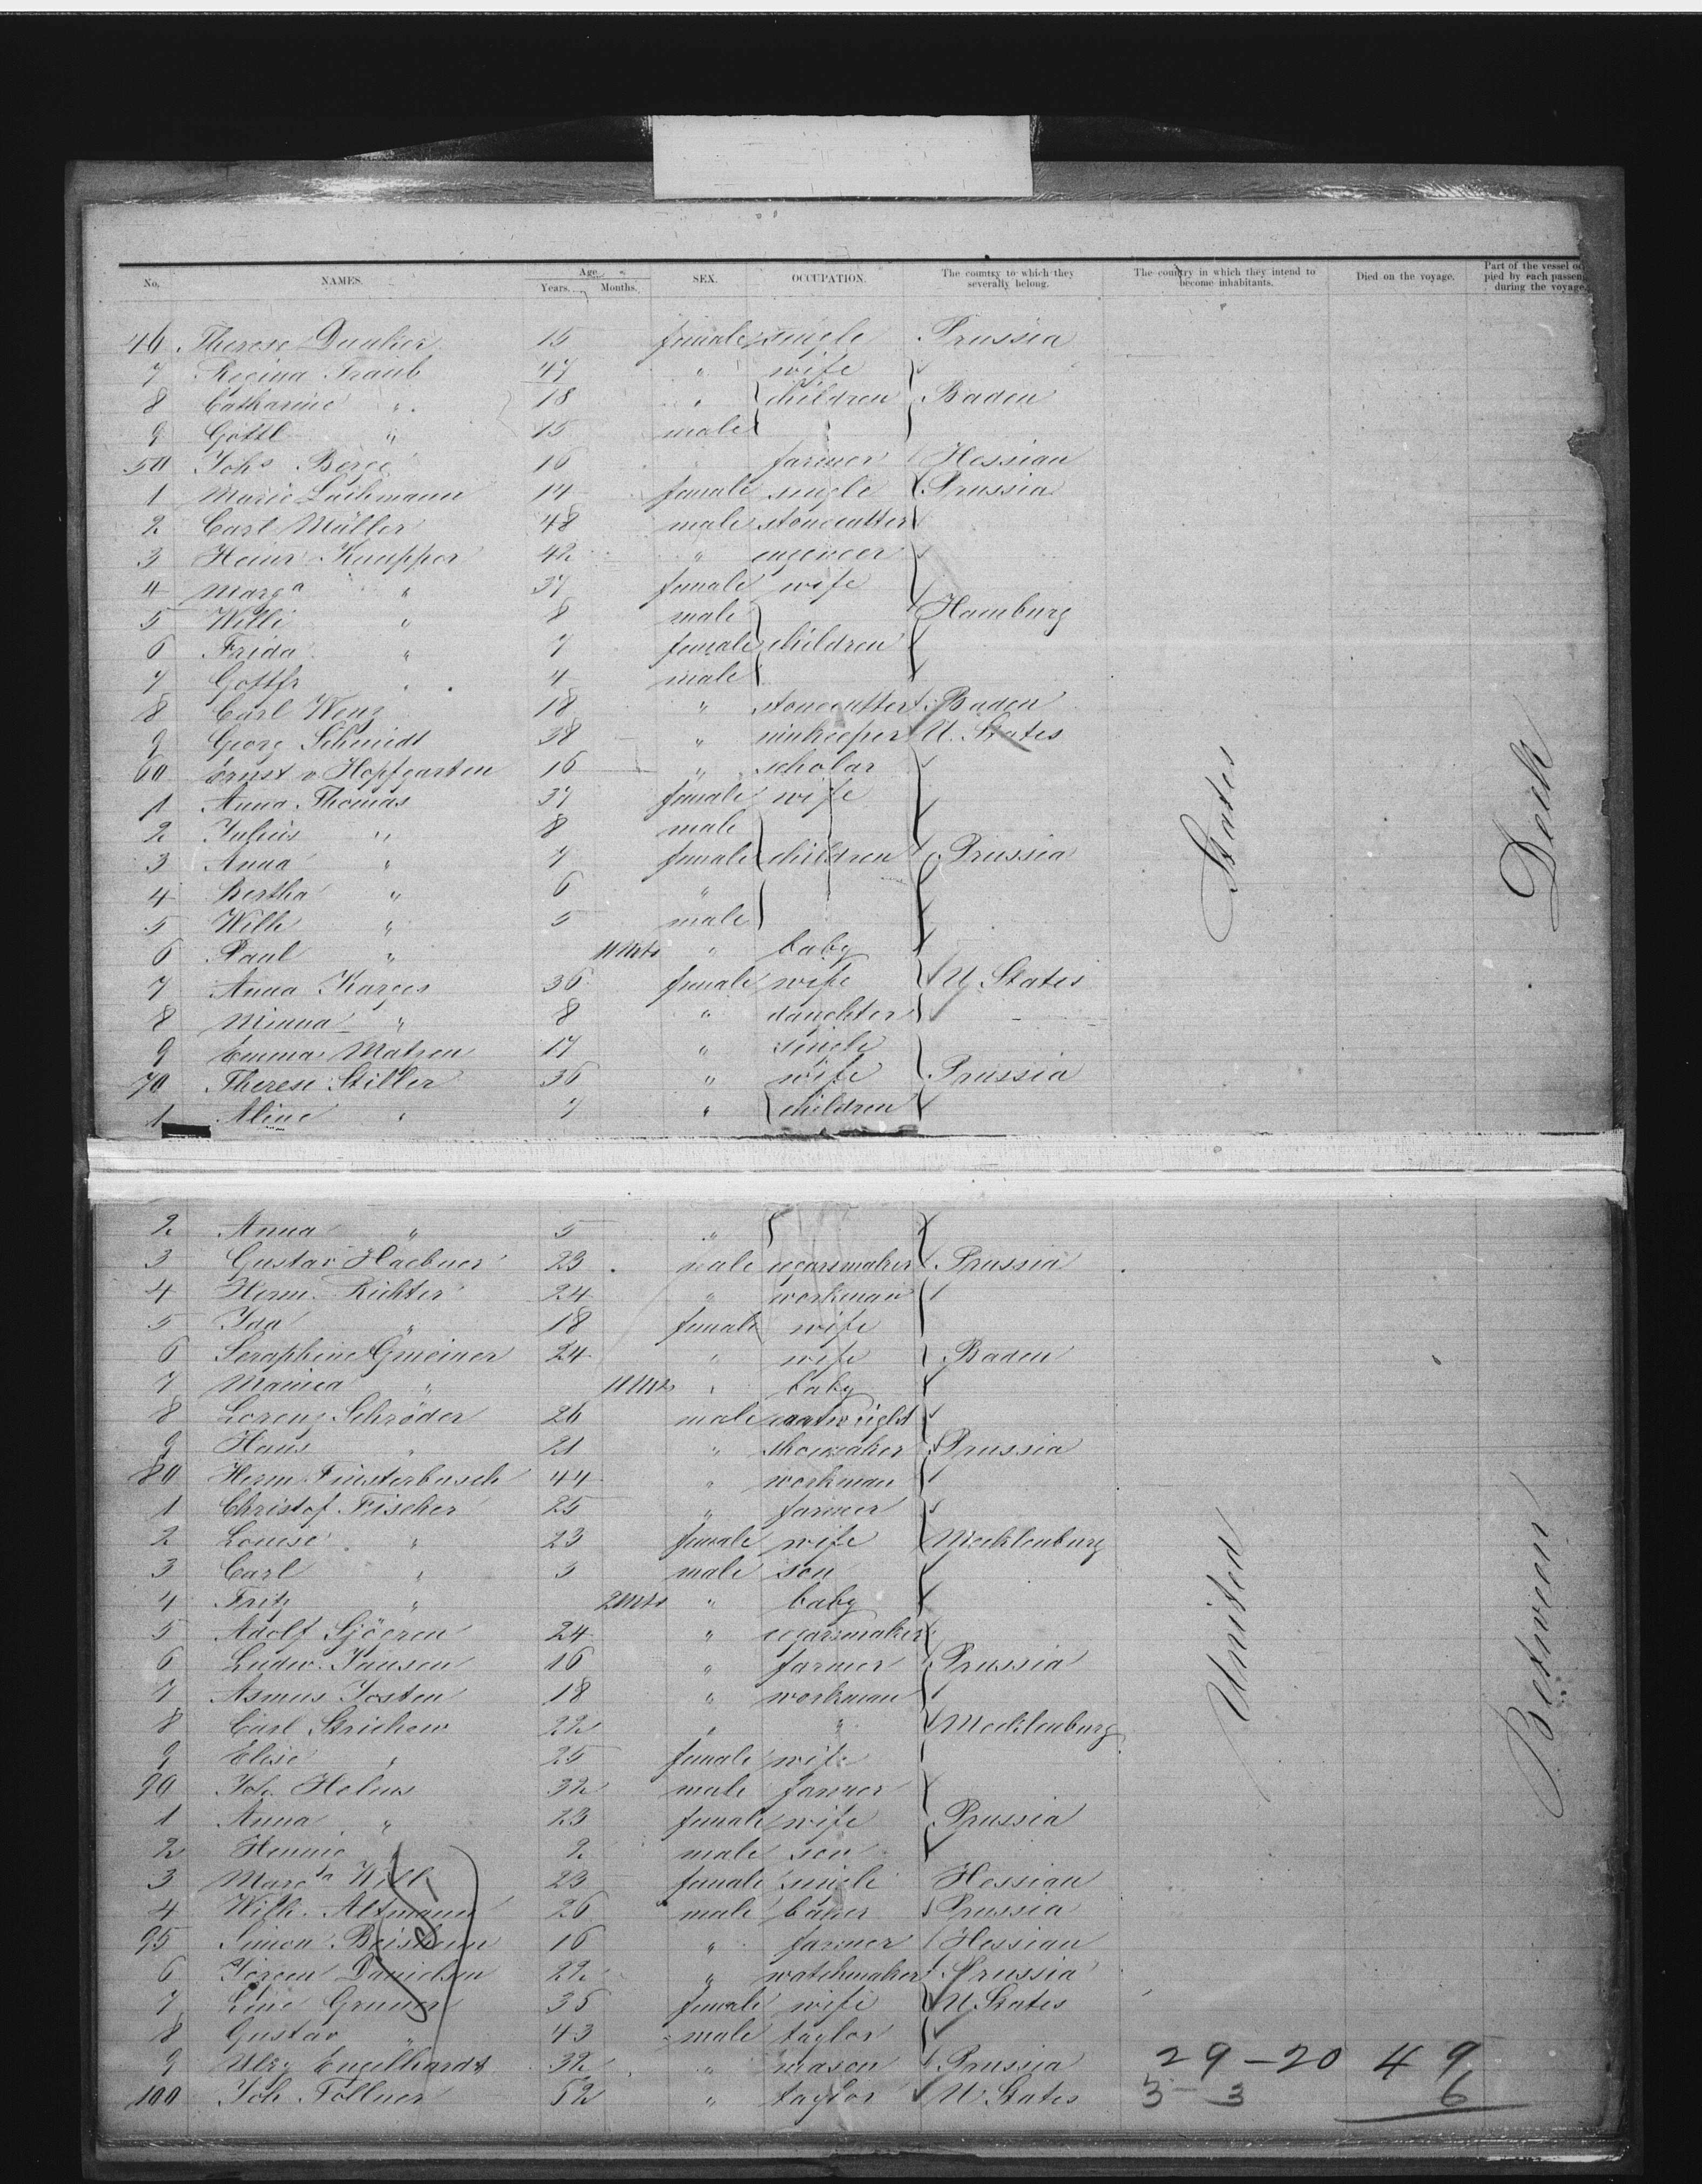 No. NAMES. Age. Years. Months. SEX. OCCUPATION. The country to which they severally belong. The country in which they intend to become inhabitants. Died on the voyage. Part of the vessel oc pied by each passen during the voyage.
46 Therese 15 female single Prussia
7 Regina Traub 47 " wife
8 Catharine " 18 " children Baden
9 Gottl " 15 male
50 Johs Berge 16 " farmer Hessian
1 Marie 14 female single Prussia
2 Carl Müller 48 male stonecutter
3 Heinr Knupper 42 " engeneer
4 Marga " 37 female wife
5 Willi " 8 male Hamburg
6 Frida " 7 female children
7 Gottfr " 4 male
8 Carl Wenz 18 " stonecutter Baden
9 Georg Schmidt 38 " innkeeper U. States
60 Ernst v Hopfgarten 16 " scholar
1 Anna Thomas 37 female wife
2 Julius " 8 male
3 Anna " 7 female children Prussia
4 Bertha " 6 "
5 Wilh " 5 male
6 Paul " 11 Mts " baby
7 Anna Karges 36 female wife U. States
8 Minna " 8 " daughter
9 Emma Matzen 17 " single
70 Therese Stiller 36 " wife Prussia
1 Aline " 7 " children
2 Anna " 5 "
3 Gustav Haebner 23 male cigarsmaker Prussia
4 Herm. Richter 24 " workman
5 Ida " 18 female wife
6 Seraphine Gmeiner 24 " wife Baden
7 " 11 Mts " baby
8 Lorenz Schröder 26 male cartwright
9 Hans " 21 " shoemaker Prussia
80 Herm Finsterbusch 44 " workman
1 Christof Fischer 25 " farmer
2 Louise " 23 female wife Mecklenburg
3 Carl " 3 male son
4 Fritz " 2 Mts " baby
5 Adolf Sjöeren 24 " cigarsmaker
6 Ludw. Jansen 16 " farmer Prussia
7 Asmus Josten 18 " workman
8 Carl Strichow 22 " " Mecklenburg
9 Elise " 25 female wife
90 Joh. Helms 32 male farmer
1 Anna " 23 female wife Prussia
2 Hennie 2 male son
3 Margta 23 female single Hessian
4 Wilh. Altmann 26 male Prussia
95 Simon Beisheim 16 " farmer Hessian
6 Danielsen 22 " watchmaker Prussia
7 Line Gruner 35 female wife U States
8 Gustav " 43 male taylor
9 Engelhardt 32 " mason Prussia
100 Joh Follner 52 " taylor U. States
United States
Between Deck
29 – 20 49
3 – 3 6